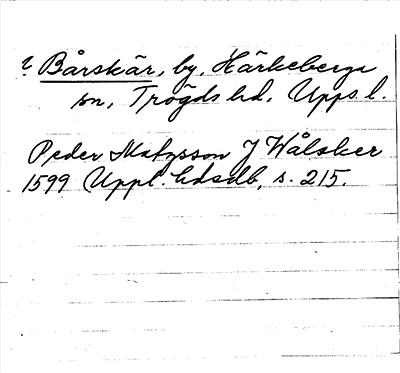 ? Bårskär, by, Härkeberga
sn, Trögds hd, Upps. l.
Peder Matzsson J Wålsker
1599 Uppl. hdsdb, s. 215.